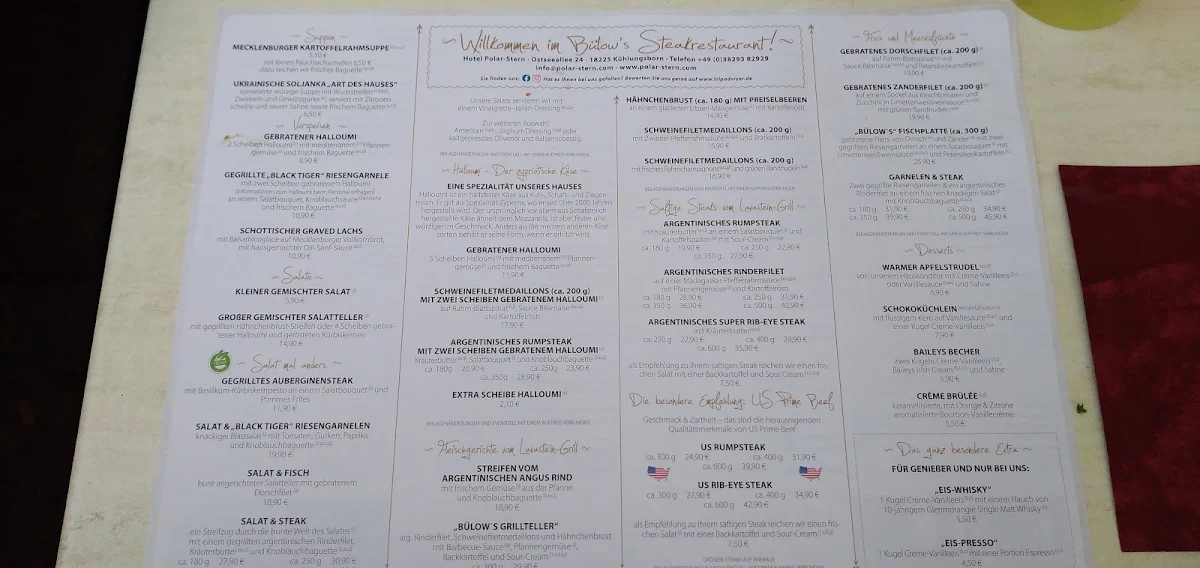 ~ Willkommen im Bülow's Steakrestaurant! ~
Hotel Polar-Stern · Ostseeallee 24 · 18225 Kühlungsborn · Telefon +49 (0)38293 82929
info@polar-stern.com · www.polar-stern.com
Sie finden uns: Hat es Ihnen bei uns gefallen? Bewerten Sie uns gerne auf www.tripadvisor.de.
~ Suppen ~
MECKLENBURGER KARTOFFELRAHMSUPPE
5,50 €
mit feinen Rauchlachsstreifen 6,50 €
dazu reichen wir frisches Baguette
UKRAINISCHE SOLJANKA „ART DES HAUSES"
tomatisierte würzige Suppe mit Wurststreifen
Zwiebeln und Gewürzgurke serviert mit Zitronen-
scheibe und saurer Sahne sowie frischem Baguette
6,50 €
~ Vorspeisen ~
GEBRATENER HALLOUMI
2 Scheiben Halloumi mit mediterranem Pfannen-
gemüse und frischem Baguette
8,90 €
GEGRILLTE „BLACK TIGER" RIESENGARNELE
mit zwei Scheiben gebratenem Halloumi
(Informationen zum Halloumi beim Personal erfragen)
an einem Salatbouquet, Knoblauchsauce
und frischem Baguette
10,90 €
SCHOTTISCHER GRAVED LACHS
mit Balsamicoglace auf Mecklenburger Vollkornbrot,
mit hausgemachter Dill-Senf-Sauce
10,90 €
~ Salate ~
KLEINER GEMISCHTER SALAT
5,90 €
GROßER GEMISCHTER SALATTELLER
mit gegrillten Hähnchenbrust-Streifen oder 4 Scheiben gebra-
tener Halloumi und gerösteten Kürbiskernen
14,90 €
~ Salat mal anders ~
GEGRILLTES AUBERGINENSTEAK
mit Basilikum-Kürbiskernpesto an einem Salatbouquet und
Pommes Frites
11,90 €
SALAT & „BLACK TIGER" RIESENGARNELEN
knackiger Blattsalat mit Tomaten, Gurken, Paprika
und Knoblauchbaguette
19,90 €
SALAT & FISCH
bunt angerichteter Salatteller mit gebratenem
Dorschfilet
18,90 €
SALAT & STEAK
ein Streifzug durch die bunte Welt des Salates
mit einem gegrillten argentinischen Rinderfilet,
Kräuterbutter und Knoblauchbaguette
ca. 180 g 27,90 € ca. 250 g 30,90 €
Unsere Salate servieren wir mit
einem Vinaigrette-Italian-Dressing
Zur weiteren Auswahl:
American, Joghurt-Dressing oder
kaltgepresstes Olivenöl und Balsamicoessig.
~ Halloumi - Der zypriotische Käse ~
EINE SPEZIALITÄT UNSERES HAUSES
Halloumi ist ein halbfester Käse aus Kuh-, Schafs- und Ziegen-
milch. Er gilt als Spezialität Zyperns, wo er vor über 2000 Jahren
hergestellt wird. Der ursprünglich vor allem aus Schafsmilch
hergestellte Käse ähnelt dem Mozzarella, ist aber fester und
würziger im Geschmack. Anders als die meisten anderen Käse-
sorten behält er seine Form, wenn er erhitzt wird.
GEBRATENER HALLOUMI
5 Scheiben Halloumi mit mediterranem Pfannen-
gemüse und frischem Baguette
11,90 €
SCHWEINEFILETMEDAILLONS (ca. 200 g)
MIT ZWEI SCHEIBEN GEBRATENEM HALLOUMI
auf Rahm-Blattspinat, Sauce Béarnaise
und Kartoffelrösti
17,90 €
ARGENTINISCHES RUMPSTEAK
MIT ZWEI SCHEIBEN GEBRATENEM HALLOUMI
Kräuterbutter, Salatbouquet und Knoblauchbaguette
ca. 180g 20,90 € ca. 250g 23,90 €
ca. 350g 28,90 €
EXTRA SCHEIBE HALLOUMI
2,10 €
BEILAGENÄNDERUNGEN SIND EVENTUELL MIT EINEM AUFPREIS VERBUNDEN.
~ Fleischgerichte vom Lavastein-Grill ~
STREIFEN VOM
ARGENTINISCHEN ANGUS RIND
mit frischem Gemüse aus der Pfanne
und Knoblauchbaguette
18,90 €
„BÜLOW´S GRILLTELLER"
arg. Rinderfilet, Schweinefiletmedaillons und Hähnchenbrust
mit Barbecue-Sauce, Pfannengemüse,
Backkartoffel und Sour-Cream
ca. 300 g 29,90 €
HÄHNCHENBRUST (ca. 180 g) MIT PREISELBEEREN
an einem glacierten Erbsen-Maisgemüse mit Kartoffelrösti
14,90 €
SCHWEINEFILETMEDAILLONS (ca. 200 g)
mit Zwiebel-Pfefferrahmsauce und Bratkartoffeln
16,90 €
SCHWEINEFILETMEDAILLONS (ca. 200 g)
mit frischen Rahmchampignons und grünen Bandnudeln
16,90 €
~ Saftige Steaks vom Lavastein-Grill ~
ARGENTINISCHES RUMPSTEAK
mit Kräuterbutter an einem Salatbouquet und
Kartoffelspalten mit Sour-Cream
ca. 180 g 19,90 € ca. 250 g 22,90 €
ca. 350 g 27,90 €
ARGENTINISCHES RINDERFILET
auf einer Madagaskar-Pfefferrahmsauce
mit Pfannengemüse und Kartoffelrösti
ca. 180 g 28,90 € ca. 250 g 31,90 €
ca. 350 g 36,90 € ca. 500 g 42,90 €
ARGENTINISCHES SUPER RIB-EYE STEAK
mit Kräuterbutter
ca. 250 g 22,90 € ca. 400 g 28,90 €
ca. 600 g 35,90 €
als Empfehlung zu Ihrem saftigen Steak reichen wir einen fris-
chen Salat mit einer Backkartoffel und Sour Cream
7,50 €
Die besondere Empfehlung: US Prime Beef
Geschmack & Zartheit – das sind die herausragenden
Qualitätsmerkmale von US Prime Beef
US RUMPSTEAK
ca. 300 g 24,90 € ca. 400 g 31,90 €
ca. 600 g 39,90 €
US RIB-EYE STEAK
ca. 300 g 27,90 € ca. 400 g 34,90 €
ca. 600 g 42,90 €
als Empfehlung zu Ihrem saftigen Steak reichen wir einen fris-
chen Salat mit einer Backkartoffel und Sour-Cream
7,50 €
GRÖßERE STEAKS AUF ANFRAGE
~ Fisch und Meeresfrüchte ~
GEBRATENES DORSCHFILET (ca. 200 g)
auf Rahm-Blattspinat mit
Sauce Béarnaise und Petersilienkartoffeln
19,90 €
GEBRATENES ZANDERFILET (ca. 200 g)
auf einem Sockel aus Kirschtomaten und
Zucchini in Limettenweißweinsauce mit
grünen Bandnudeln
19,90 €
„BÜLOW´S" FISCHPLATTE (ca. 300 g)
gebratene Filets von Dorsch und Zander mit zwei
gegrillten Riesengarnelen an einem Salatbouquet mit
Limettenweißweinsauce und Petersilienkartoffeln
25,90 €
GARNELEN & STEAK
Zwei gegrillte Riesengarnelen & ein argentinisches
Rinderfilet an einem frischen knackigen Salat
mit Knoblauchbaguette
ca. 180 g 31,90 € ca. 250 g 34,90 €
ca. 350 g 39,90 € ca. 500 g 45,90 €
~ Desserts ~
WARMER APFELSTRUDEL
von unserem Hauskonditor mit Creme-Vanilleeis
oder Vanillesauce und Sahne
6,90 €
SCHOKOKÜCHLEIN
mit flüssigem Kern auf Vanillesauce und
einer Kugel Creme-Vanilleeis
7,90 €
BAILEYS BECHER
zwei Kugeln Creme-Vanilleeis
Baileys Irish Cream und Sahne
5,90 €
CRÈME BRÛLÉE
karamellisierte, mit Orange & Zitrone
aromatisierte Bourbon-Vanillecrème
5,50 €
~ Das ganz besondere Extra ~
FÜR GENIEßER UND NUR BEI UNS:
„EIS-WHISKY"
1 Kugel Creme-Vanilleeis mit einem Hauch von
10-jährigem Glenmorangie Single Malt Whisky
5,50 €
„EIS-PRESSO"
1 Kugel Creme-Vanilleeis mit einer Portion Espresso
4,50 €